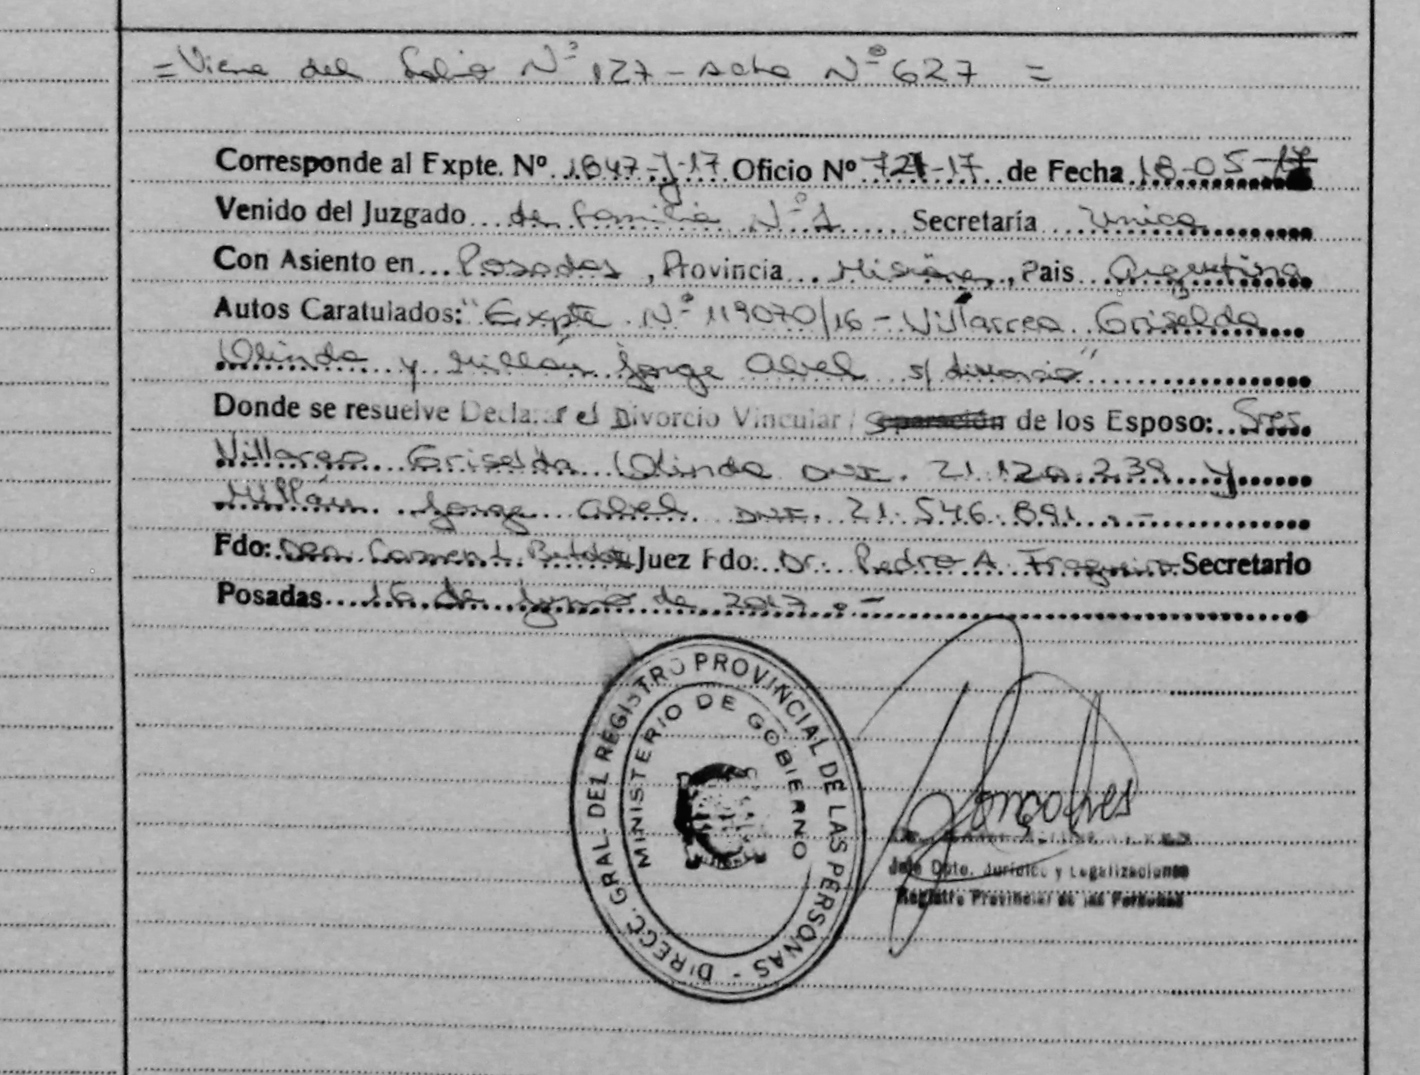 = Viene del folio Nº 127 - Acta Nº 627 =
Corresponde al Expte. Nº 1847-J-17 Oficio Nº 721-17 de Fecha 18-05-17
Venido del Juzgado de Familia Nº 1 Secretaría Unica
Con Asiento en Posadas, Provincia Misiones, Pais Argentina
Autos Caratulados: "Expte Nº 119070/16 - Villarrea Griselda
Olinda y Millán Jorge Abel s/ divorcio"
Donde se resuelve Declarar el Divorcio Vincular / Separación de los Esposo: Sres.
Villarea Griselda Olinda DNI. 21.120.239 y
Millán Jorge Abel DNI. 21.546.891.-
Fdo: Dra. Carmen L. Juez Fdo: Dr. Pedro A. Fragueiro Secretario
Posadas 16 de Junio de 2017.-
DIRECC. GRAL. DEL REGISTRO PROVINCIAL DE LAS PERSONAS -
MINISTERIO DE GOBIERNO
Jefe Dpto. Jurídico y Legalizaciones
Registro Provincial de las Personas